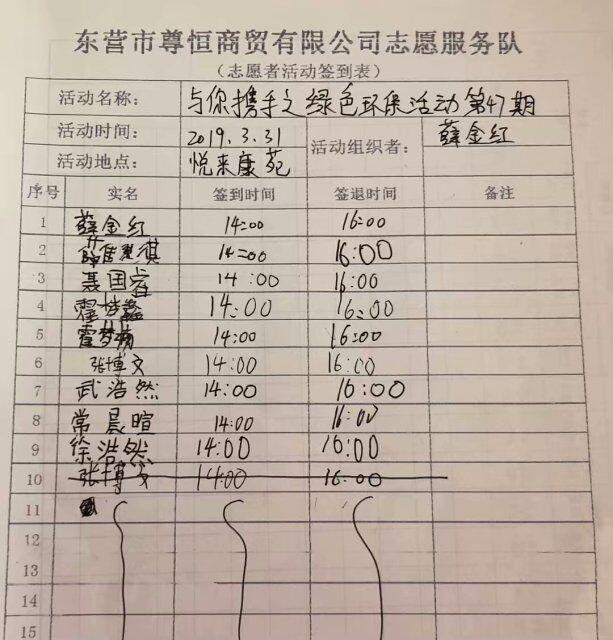 东营市尊恒商贸有限公司志愿服务队
（志愿者活动签到表）
活动名称： 与你携手之绿色环保活动第47期
活动时间： 2019.3.31 活动组织者： 薛金红
活动地点： 悦来康苑
序号 实名 签到时间 签退时间 备注
1 薛金红 14:00 16:00
2 14:00 16:00
3 聂国睿 14:00 16:00
4 霍 14:00 16:00
5 霍梦 14:00 16:00
6 张博文 14:00 16:00
7 武浩然 14:00 16:00
8 常晨暄 14:00 16:00
9 徐浩然 14:00 16:00
10 张博文 14:00 16:00
11
12
13
14
15